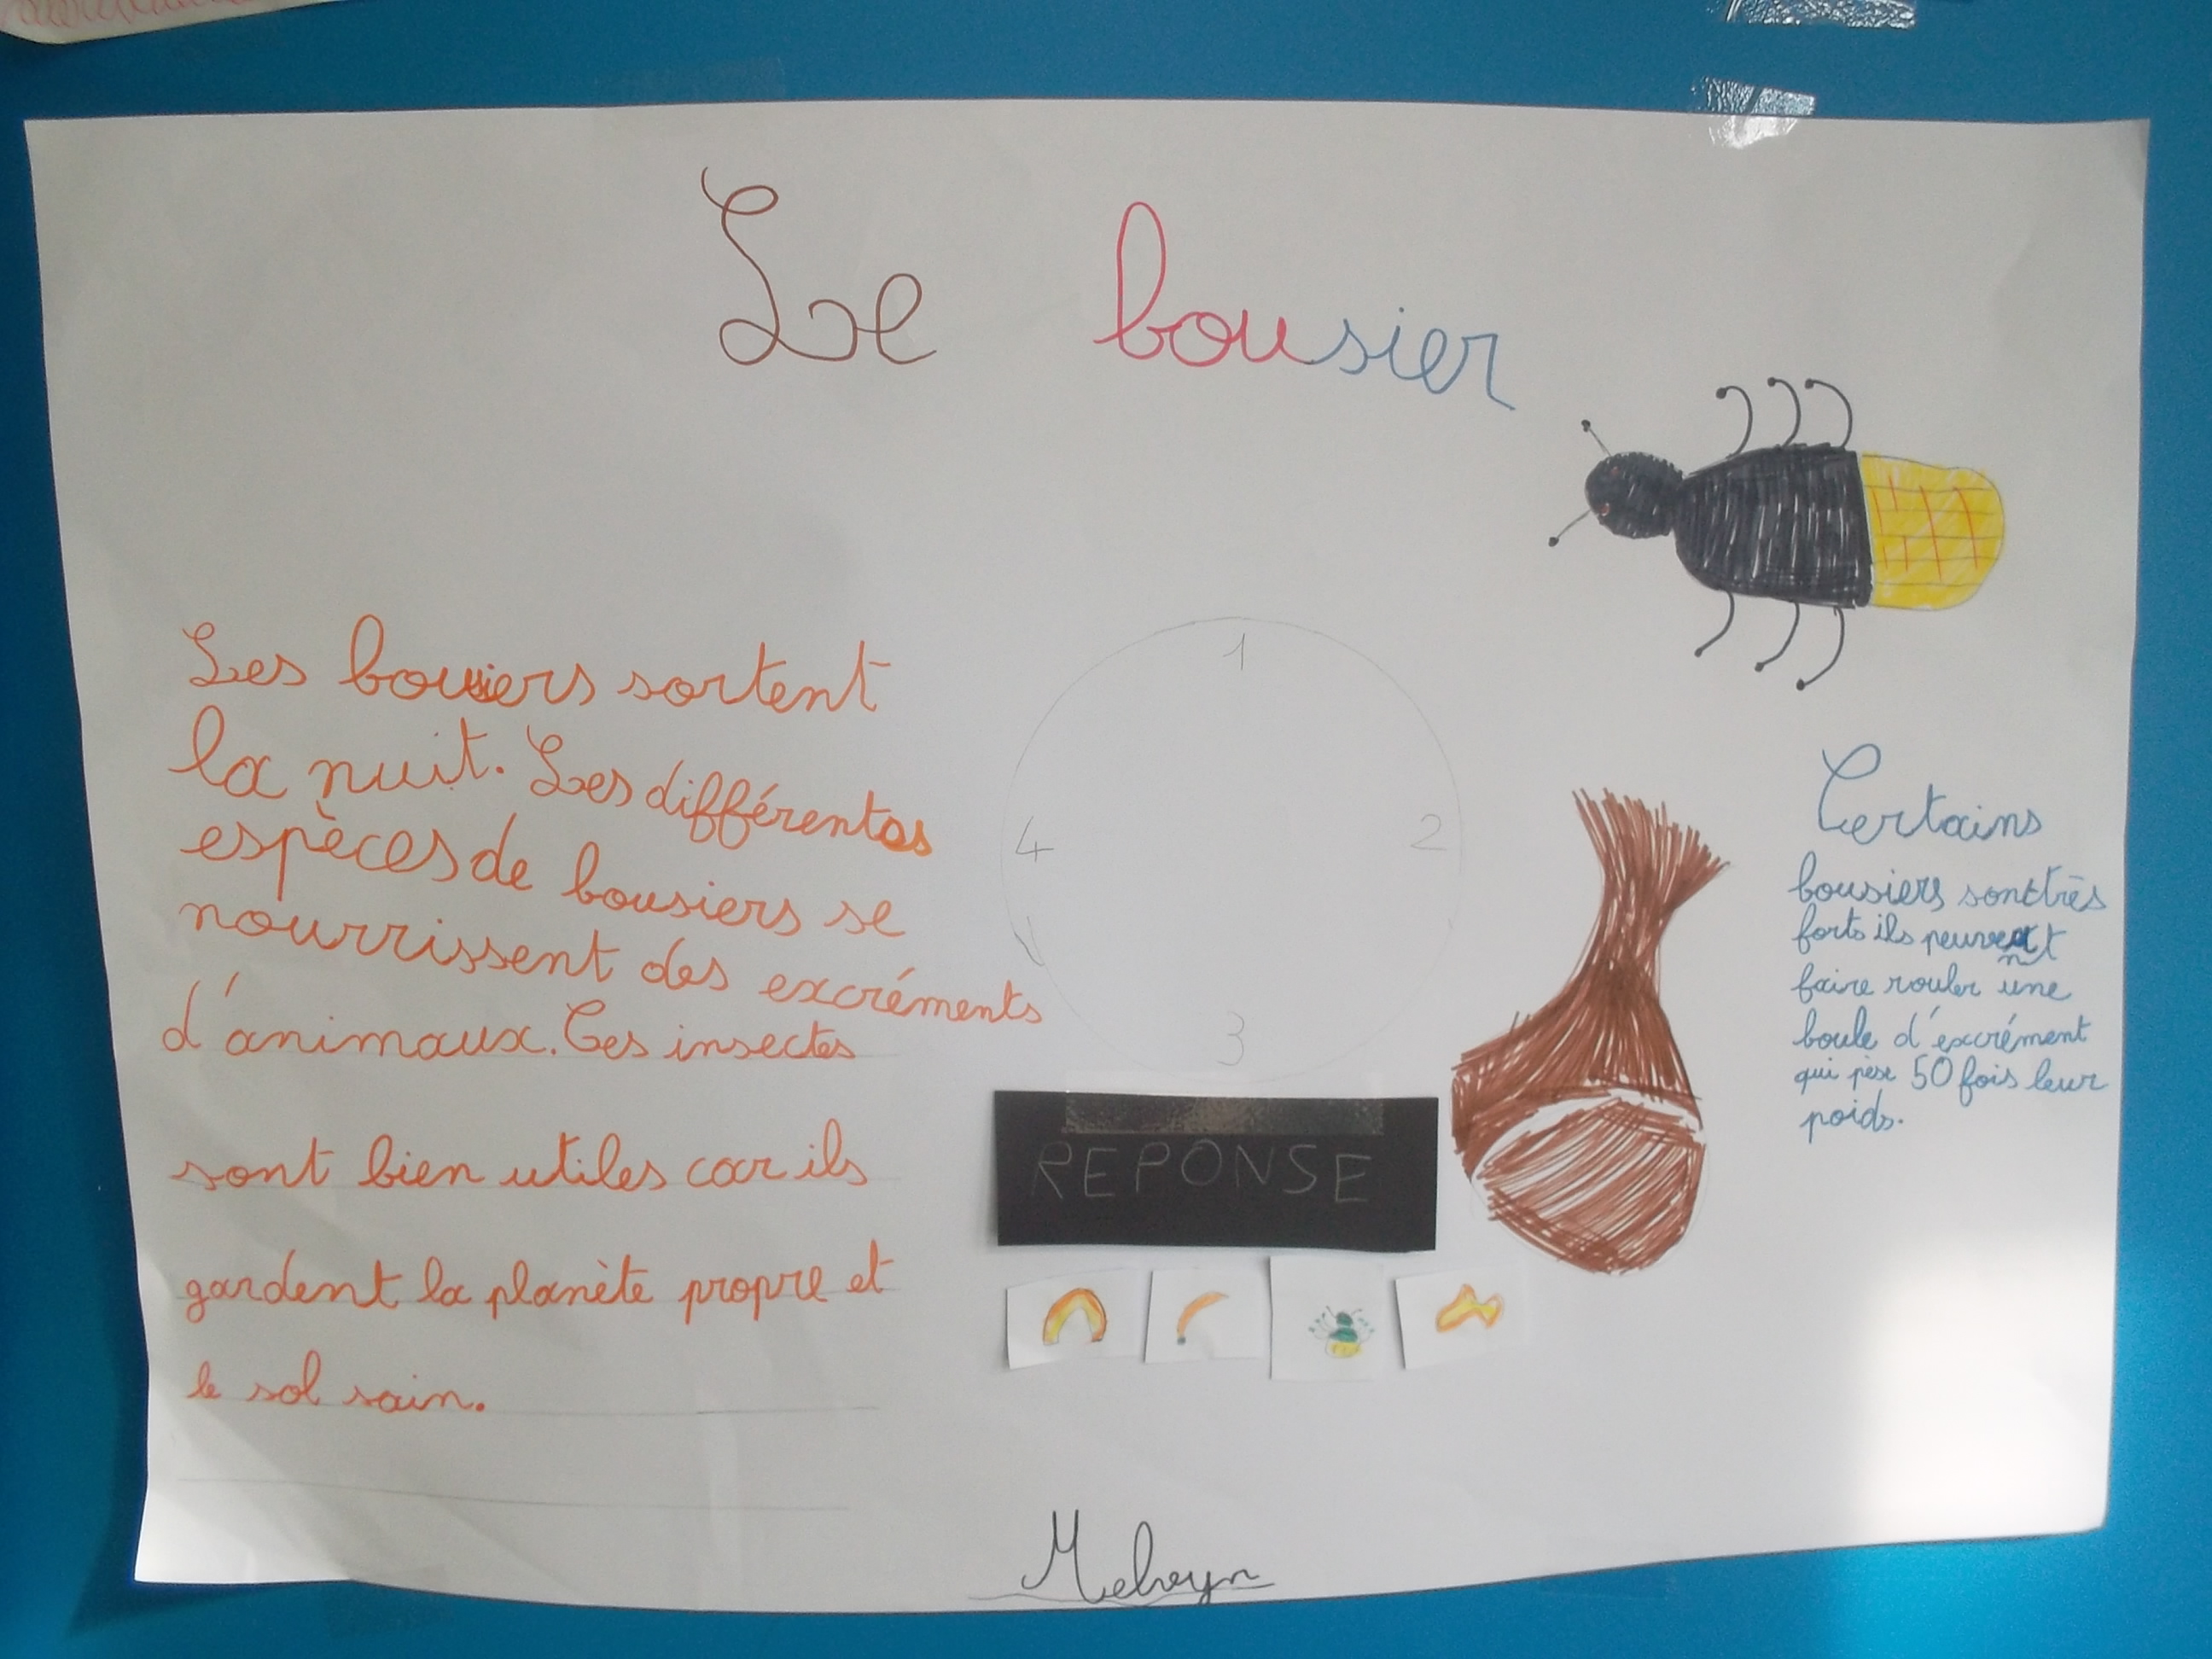 Le bousier
Les bousiers sortent
la nuit. Les différentes
espèces de bousiers se
nourrissent des excréments
d'animaux. Ces insectes
sont bien utiles car ils
gardent la planète propre et
le sol sain.
1
2
3
4
REPONSE
Certains
bousiers sont très
forts ils peuvent
faire rouler une
boule d'excrément
qui pèse 50 fois leur
poids.
Melvyn